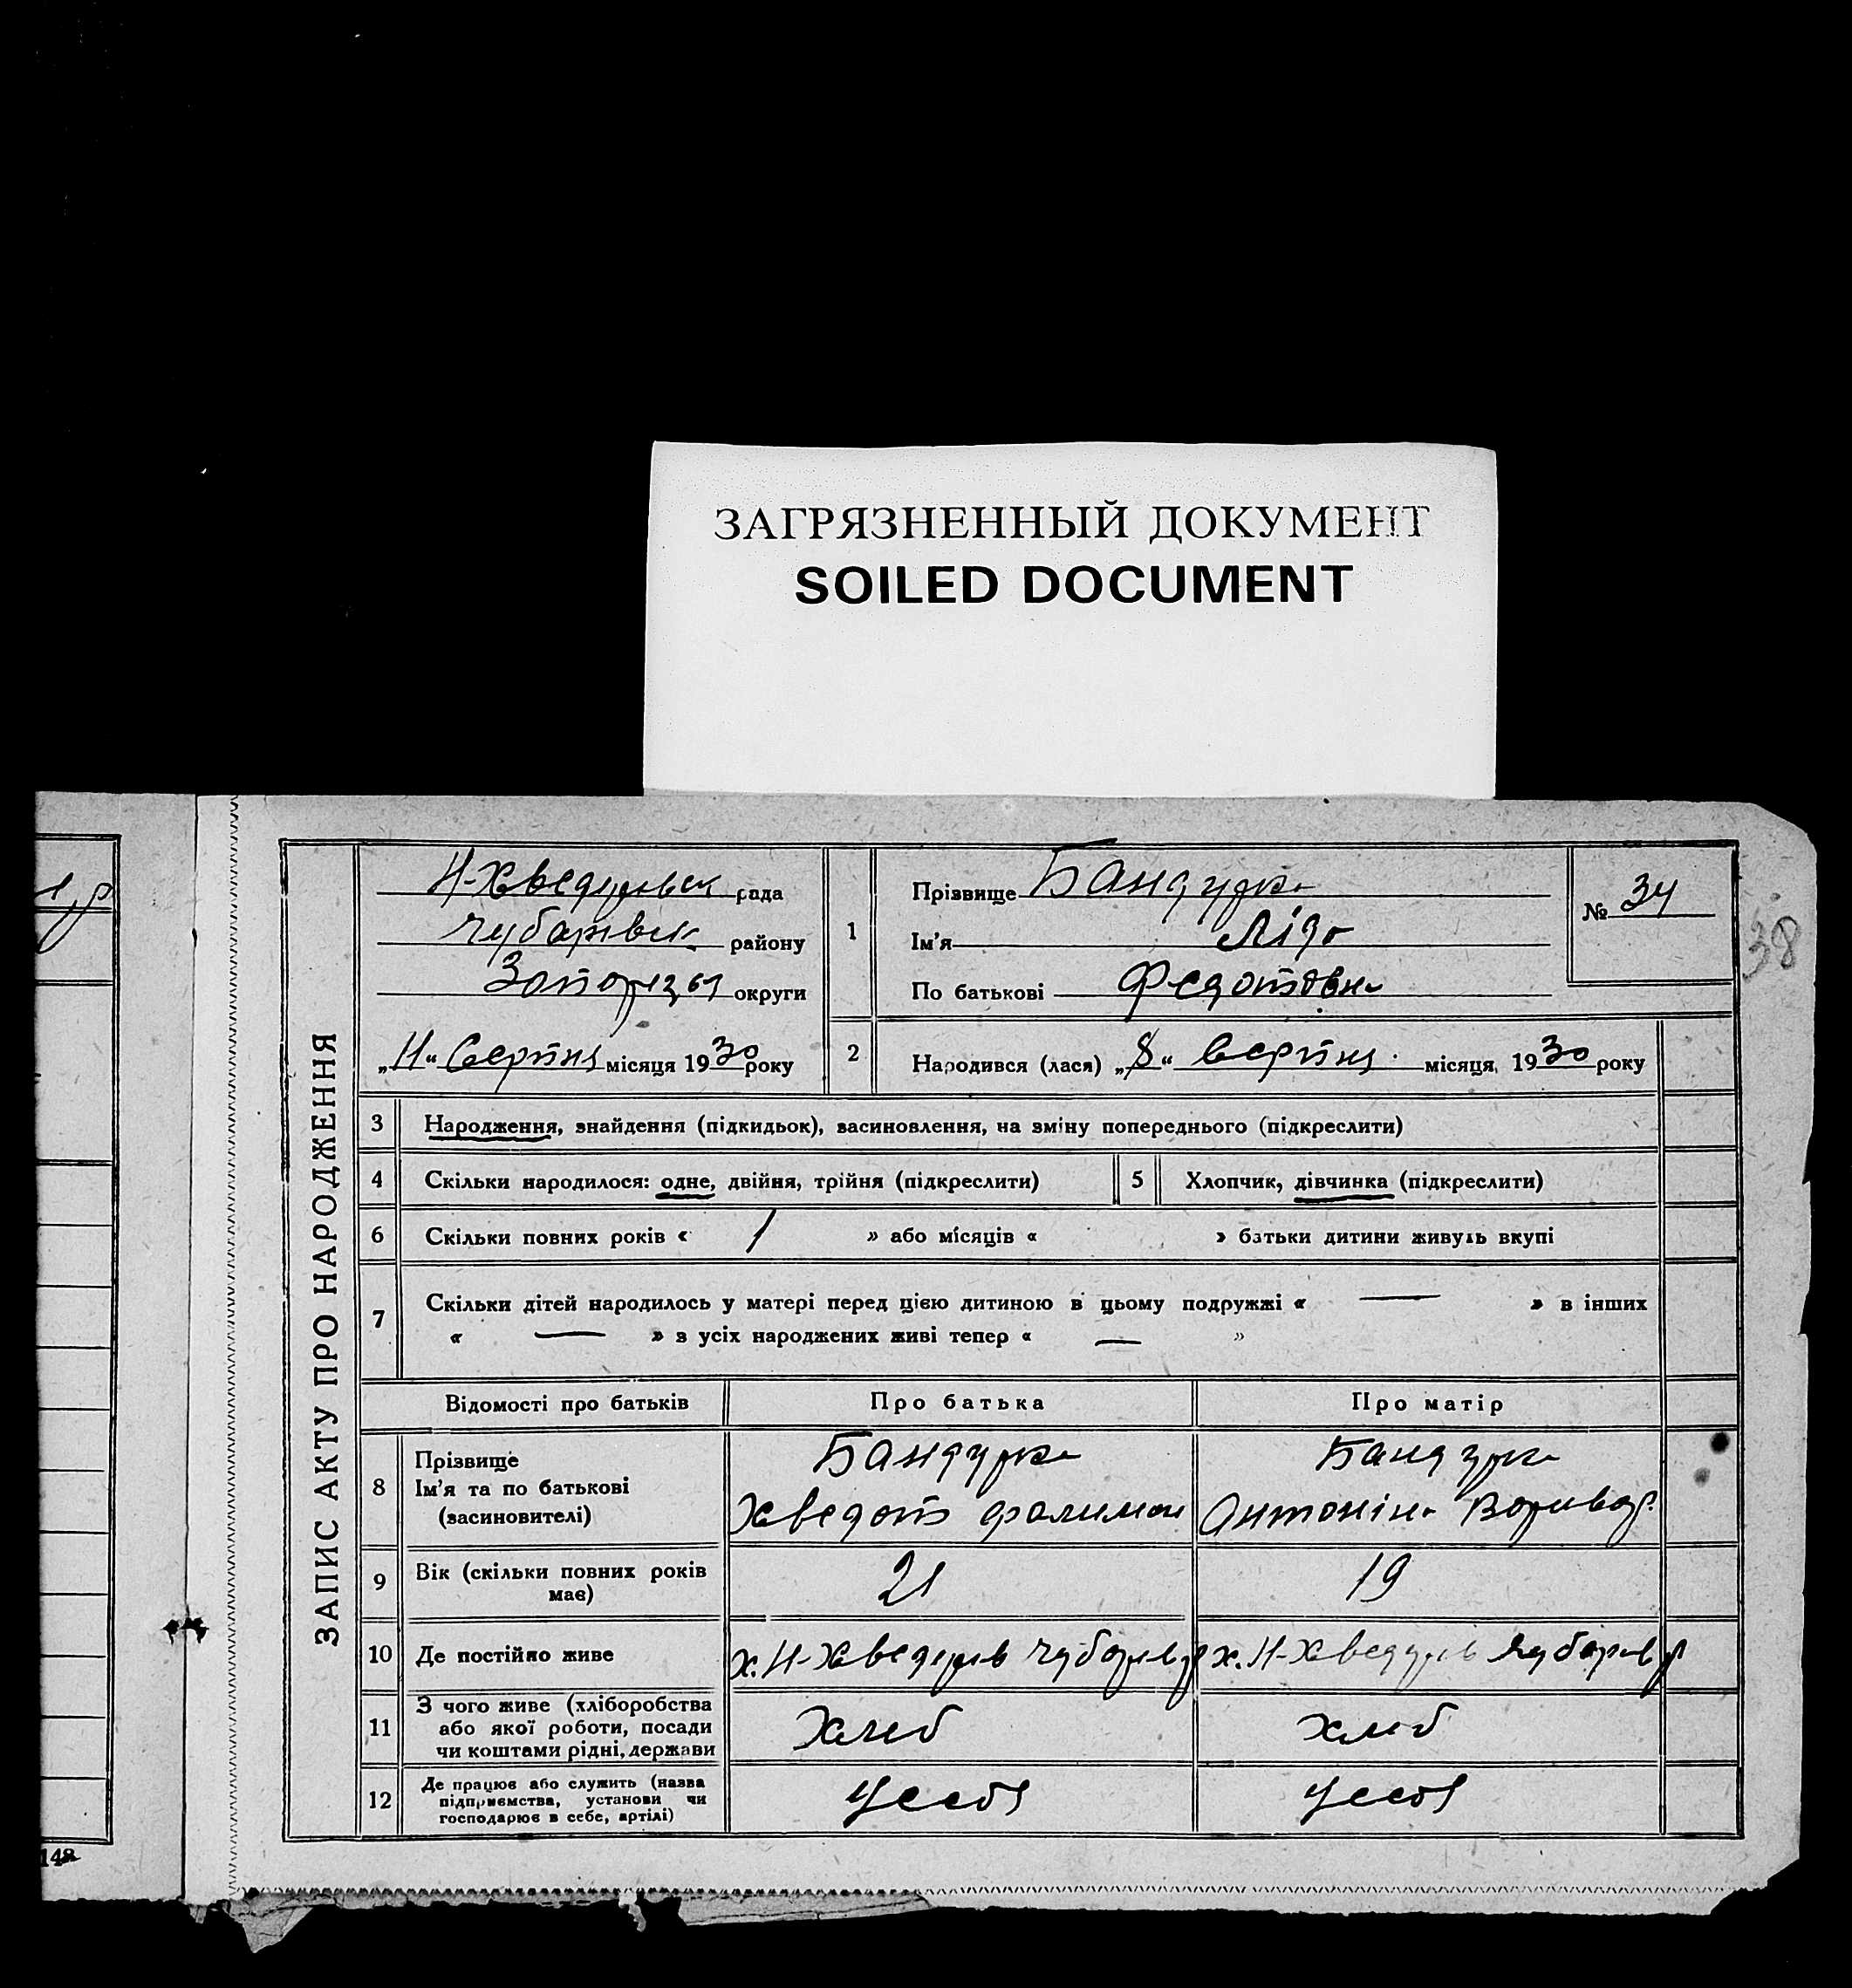 ЗАГРЯЗНЕННЫЙ ДОКУМЕНТ
SOILED DOCUMENT
ЗАПИС АКТУ ПРО НАРОДЖЕННЯ
Н-Хведуровск рада
Чубарівск району
округи
„11“ Серпня місяця 1930 року
1
Прізвище Бандурка
Ім'я Ліда
По батькові Федотовна
№ 34
38
2
Народився (лася) „8“ Серпня місяця 1930 року
3 Народження, знайдення (підкидьок), васиновлення, на зміну попереднього (підкреслити)
4 Скільки народилося: одне, двійня, трійня (підкреслити) 5 Хлопчик, дівчинка (підкреслити)
6 Скільки повних років « 1 » або місяців « » батьки дитини живуть вкупі
7 Скільки дітей народилось у матері перед цією дитиною в цьому подружжі « — » в інших
« — » з усіх народжених живі тепер « — »
Відомості про батьків Про батька Про матір
8 Прізвище Бандурка Бандурка
Ім'я та по батькові
(васиновителі) Хведот Филимон Антоніна
9 Вік (скільки повних років має) 21 19
10 Де постійно живе х. Н-Хведуров Чубарів р х. Н-Хведуров Чубарів р
11 З чого живе (хліборобства
або якої роботи, посади
чи коштами рідні, держави Хлеб Хлеб
12 Де працює або служить (назва
підприємства, установи чи
господарює в себе, артілі) У себя У себя
148